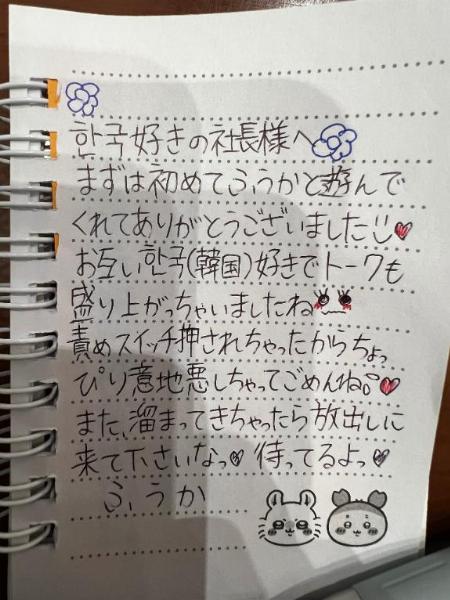 한국好きの社長様へ
まずは初めてふうかと遊んで
くれてありがとうございました
お互い한국(韓国)好きでトークも
盛り上がっちゃいましたね
責めスイッチ押されちゃったからちょっ
ぴり意地悪しちゃってごめんね。
また、溜まってきちゃったら放出しに
来て下さいなっ 待ってるよっ
ふうか